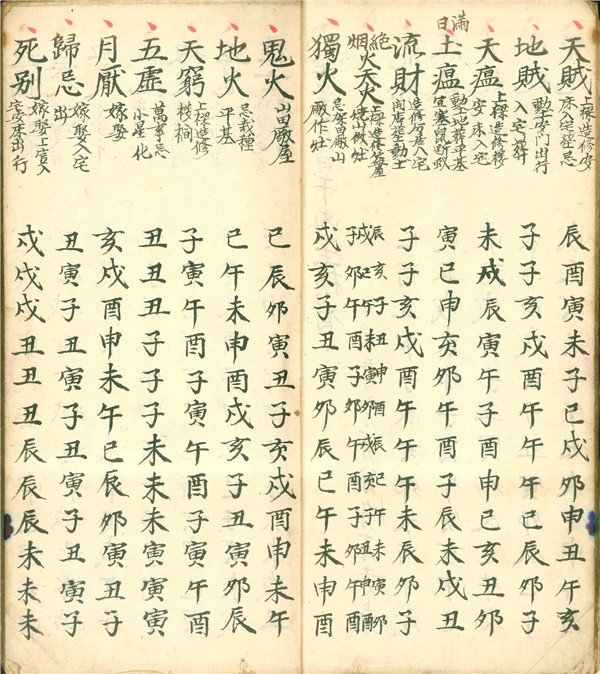 天賊 上樑造修安床入宅塟忌 辰酉寅未子巳戌卯申丑午亥
地賊 動土安門出行入宅葬 子子亥戌酉午午午巳辰卯子
天瘟 上樑造修移安床入宅 未戌辰寅午子酉申巳亥丑卯
滿日
土瘟 動土地葬平基定塞鼠断蚁 寅巳申亥卯午酉子辰未戌丑
流財 造修居入宅開店塟動土 子子亥戌酉午午午未辰卯子
絶烟火 天火 子卯午酉子卯午酉子卯午酉
獨火 忌架田厰山厰作灶 戌亥子丑寅卯辰巳午未申酉
鬼火 山田厰屋 巳辰卯寅丑子亥戌酉申未午
地火 忌栽種平基 巳午未申酉戌亥子丑寅卯辰
天窮 上樑造修 子寅午酉子寅午酉子寅午酉
五虛 萬事忌小星化 丑丑丑子子子未未未寅寅寅
月厭 嫁娶 亥戌酉申未午巳辰卯寅丑子
歸忌 嫁娶入宅出 丑寅子丑寅子丑寅子丑寅子
死别 嫁娶上官入宅安床出行 戌戌戌丑丑丑辰辰辰未未未